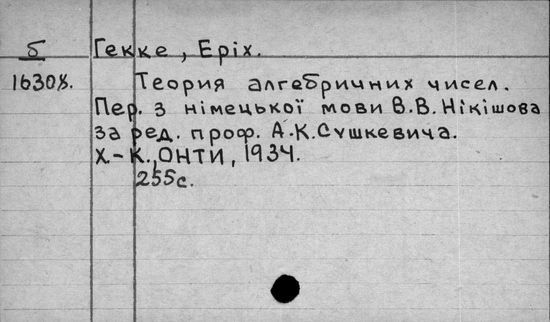 б Гекке, Еріх.
16308. Теория алгебричних чисел.
Пер. з німецької мови В.В.Нікішова
за ред. проф. А.К.Сушкевича.
Х.-К., ОНТИ, 1934.
255с.